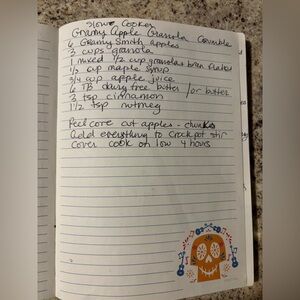 Slow Cooker
Granny Apple Granola Crumble
6 Granny Smith apples
3 cups granola
1 mixed 1/2 cup granola & bran flakes
1/2 cup maple syrup
3/4 cup apple juice
6 TB dairy free butter / or butter
3 tsp cinnamon
1 1/2 tsp nutmeg
Peel core cut apples - chunks
Add everything to crockpot stir
Cover cook on low 4 hours